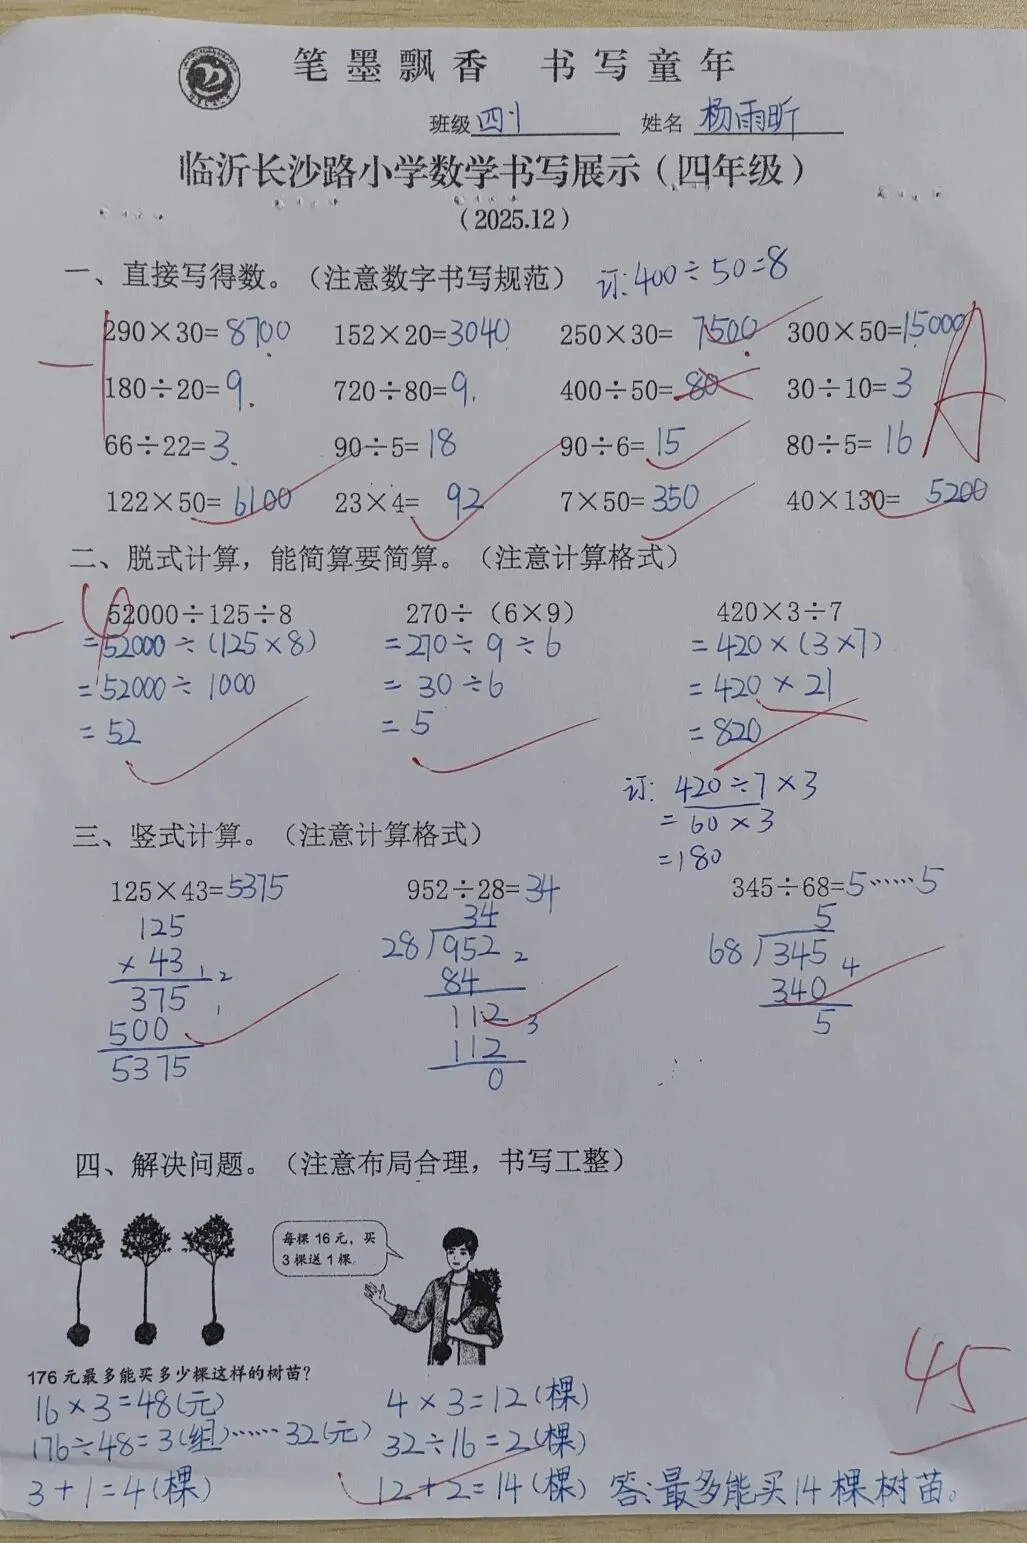 笔墨飘香 书写童年
班级 四1 姓名 杨雨昕
临沂长沙路小学数学书写展示（四年级）
（2025.12）
一、直接写得数。（注意数字书写规范） 订:400÷50=8
290×30=8700 152×20=3040 250×30=7500 300×50=15000
180÷20=9 720÷80=9 400÷50=80 30÷10=3
66÷22=3 90÷5=18 90÷6=15 80÷5=16
122×50=6100 23×4=92 7×50=350 40×130=5200
A
二、脱式计算，能简算要简算。（注意计算格式）
52000÷125÷8 270÷（6×9） 420×3÷7
=52000÷(125×8) =270÷9÷6 =420×(3×7)
=52000÷1000 =30÷6 =420×21
=52 =5 =820
订: 420÷7×3
=60×3
=180
三、竖式计算。（注意计算格式）
125×43=5375 952÷28=34 345÷68=5……5
125 34 5
×43 28)952 68)345
375 84 340
500 112 5
5375 112
0
四、解决问题。（注意布局合理，书写工整）
每棵 16 元，买
3 棵送 1 棵
176 元最多能买多少棵这样的树苗？
16×3=48(元) 4×3=12(棵)
176÷48=3(组)……32(元) 32÷16=2(棵)
3+1=4(棵) 12+2=14(棵) 答:最多能买14棵树苗。
45